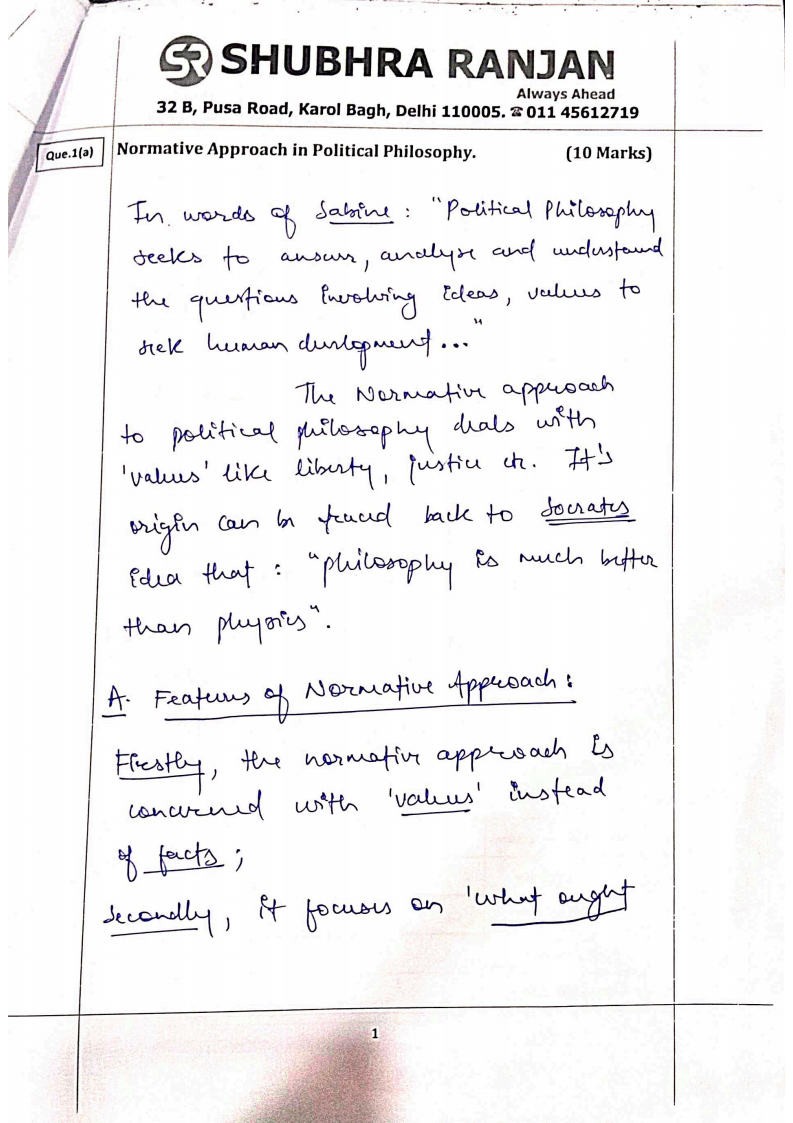 SR SHUBHRA RANJAN
Always Ahead
32 B, Pusa Road, Karol Bagh, Delhi 110005. ☎ 011 45612719
Que.1(a) Normative Approach in Political Philosophy. (10 Marks)
In words of Sabine : "Political Philosophy
seeks to answer, analyse and understand
the questions involving ideas, values to
seek human development..."
The Normative approach
to political philosophy deals with
'values' like liberty, justice etc. It's
origin can be traced back to Socrates
idea that : "philosophy is much better
than physics".
A. Features of Normative Approach :
Firstly, the normative approach is
concerned with 'values' instead
of facts ;
Secondly, it focuses on 'what ought
1